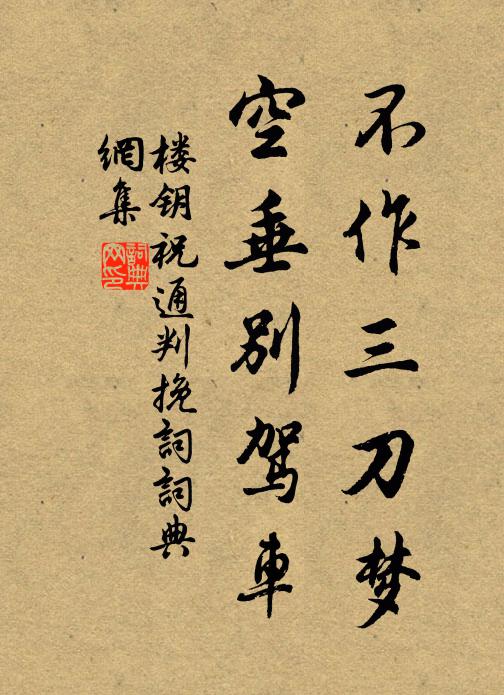 不作三刀梦
空垂别驾車
楼钥祝通判挽詞詞典
網集
詞典
网印